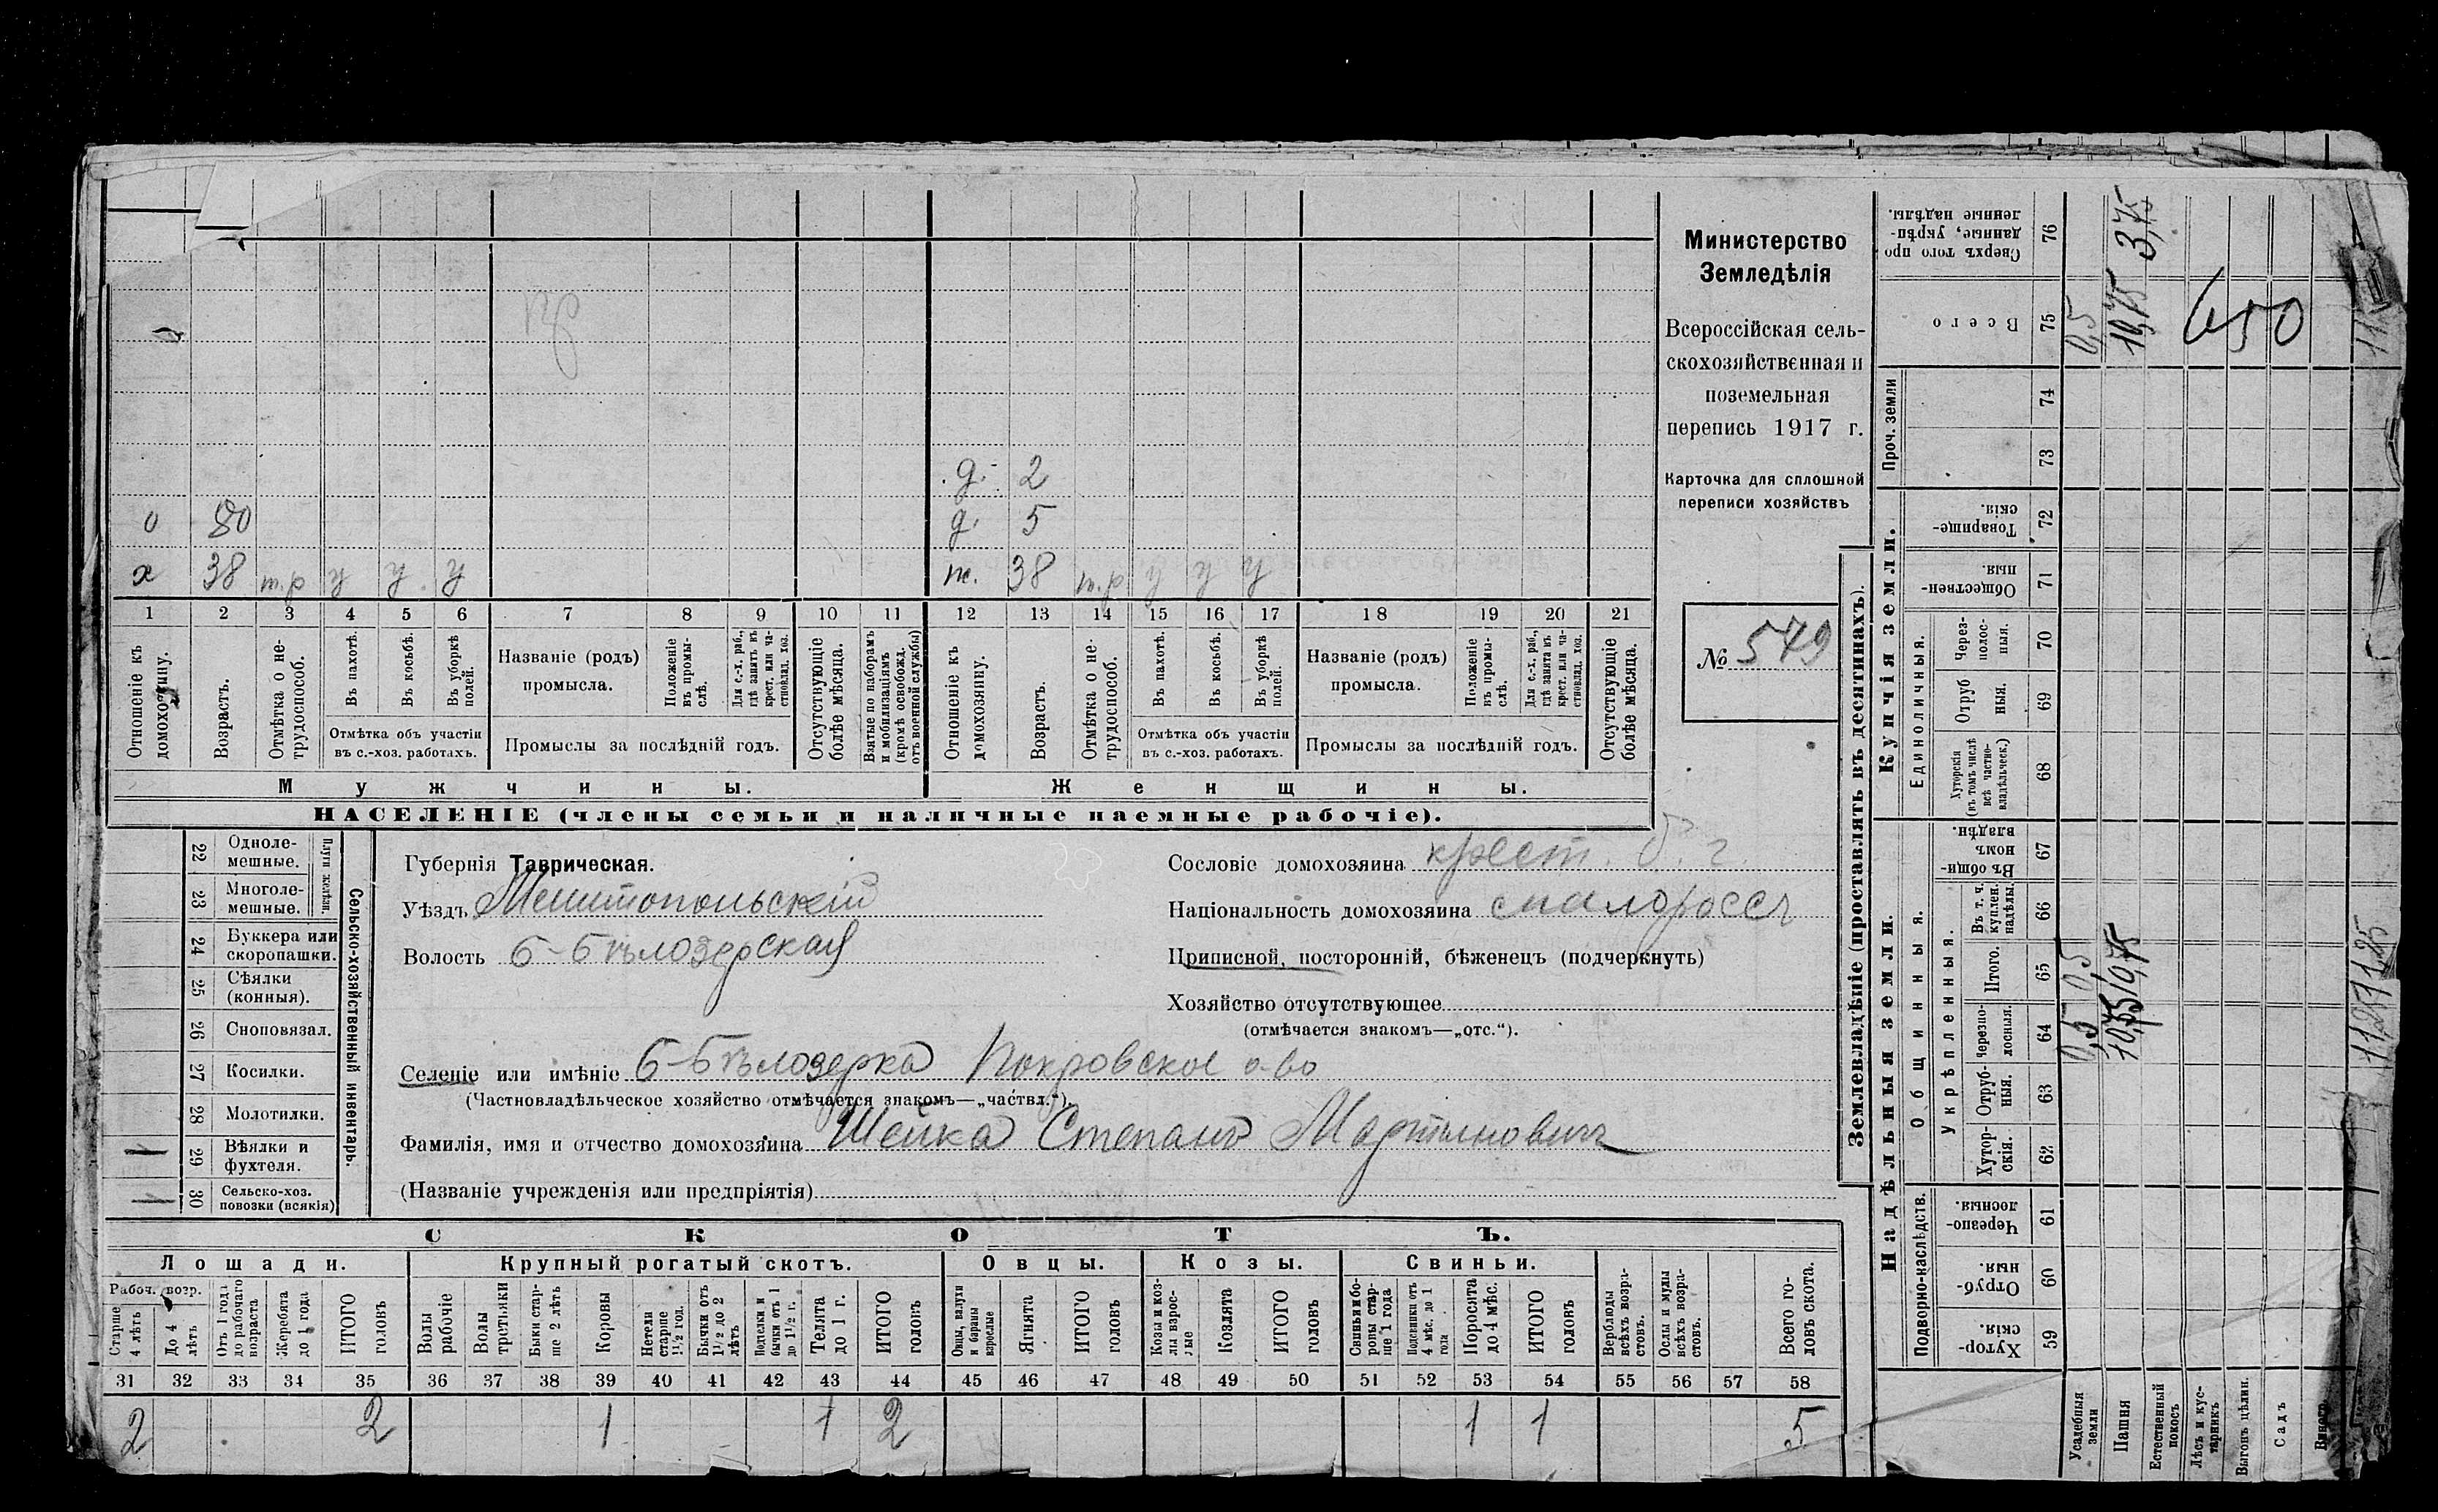 .д. 2
о 80 д. 5
х 38 т.р у у у ж. 38 т.р у у у
1 2 3 4 5 6 7 8 9 10 11 12 13 14 15 16 17 18 19 20 21
Отношеніе къ домохозяину.
Возрастъ.
Отмѣтка о нетрудоспособ.
Въ пахотѣ.
Въ косьбѣ.
Въ уборкѣ полей.
Отмѣтка объ участіи
въ с.-хоз. работахъ.
Названіе (родъ)
промысла.
Положеніе въ промыслѣ.
Для с.-х. раб., гдѣ занятъ въ крест. или частновлад. хоз.
Промыслы за послѣдній годъ.
Отсутствующіе болѣе мѣсяца.
Взятые по наборамъ и мобилизаціямъ (кромѣ освобожд. отъ военной службы)
Отношеніе къ домохозяину.
Возрастъ.
Отмѣтка о нетрудоспособ.
Въ пахотѣ.
Въ косьбѣ.
Въ уборкѣ полей.
Отмѣтка объ участіи
въ с.-хоз. работахъ.
Названіе (родъ)
промысла.
Положеніе въ промыслѣ.
Для с.-х. раб., гдѣ занята въ крест. или частновлад. хоз.
Промыслы за послѣдній годъ.
Отсутствующіе болѣе мѣсяца.
Мужчины. Женщины.
НАСЕЛЕНІЕ (члены семьи и наличные наемные рабочіе).
Министерство
Земледѣлія
Всероссійская сель-
скохозяйственная и
поземельная
перепись 1917 г.
Карточка для сплошной
переписи хозяйствъ
№ 549
22 Одноле-
мешные.
23 Многоле-
мешные.
Плуги желѣзн.
24 Буккера или
скоропашки.
25 Сѣялки
(конныя).
26 Сноповязал.
27 Косилки.
28 Молотилки.
1 29 Вѣялки и
фухтеля.
1 30 Сельско-хоз.
повозки (всякія)
Сельско-хозяйственный инвентарь.
Губернія Таврическая.
Уѣздъ Мелитопольскій
Волость Б-Бѣлозерская
Сословіе домохозяина крест.
Національность домохозяина малороссъ
Приписной, посторонній, бѣженецъ (подчеркнуть)
Хозяйство отсутствующее
(отмѣчается знакомъ—„отс.“).
Селеніе или имѣніе Б-Бѣлозерка Покровское о-во
(Частновладѣльческое хозяйство отмѣчается знакомъ—„частвл.“).
Фамилія, имя и отчество домохозяина Шейка Степанъ Мартынович
(Названіе учрежденія или предпріятія)
СКОТЪ.
Лошади. Крупный рогатый скотъ. Овцы. Козы. Свиньи.
Рабоч. возр.
Старше 4 лѣтъ
До 4 лѣтъ
Отъ 1 года до рабочаго возраста
Жеребята до 1 года
ИТОГО головъ
Волы рабочіе
Волы третьяки
Быки старше 2 лѣтъ
Коровы
Нетели старше 1½ год.
Бычки отъ 1½ до 2 лѣтъ
Подтелки и бычки отъ 1 до 1½ г.
Телята до 1 г.
ИТОГО головъ
Овцы, валухи и бараны взрослые
Ягнята
ИТОГО головъ
Козы и козлы взрослые
Козлята
ИТОГО головъ
Свиньи и боровы старше 1 года
Подсвинки отъ 4 мѣс. до 1 года
Поросята до 4 мѣс.
ИТОГО головъ
Верблюды всѣхъ возрастовъ.
Ослы и мулы всѣхъ возрастовъ.
Всего головъ скота.
31 32 33 34 35 36 37 38 39 40 41 42 43 44 45 46 47 48 49 50 51 52 53 54 55 56 57 58
2 2 1 1 2 1 1 5
Землевладѣніе (проставлять въ десятинахъ).
Купчія земли.
Надѣльныя земли.
Сверхъ того проданные, укрѣпленные надѣлы. 76 3,75
Всего 75 0,5 10,75 650
Проч. земли 74
73
Товарищескія. 72
Общественныя. 71
Единоличныя.
Черезполосныя. 70
Отрубныя. 69
Хуторскія (въ томъ числѣ всѣ частновладѣльческ.) 68
Общинныя.
Въ общинномъ владѣн. 67
Укрѣпленныя.
Въ т. ч. куплен. надѣлы. 66
Итого. 65 0,5 10,75 11,25
Черезполосныя. 64 0,5 10,75 11,25
Отрубныя. 63
Хуторскія. 62
Подворно-наслѣдств.
Черезполосныя. 61
Отрубныя. 60
Хуторскія. 59
Усадебныя земли
Пашня
Естественный покосъ
Лѣсъ и кустарникъ
Выгонъ цѣлин.
Садъ